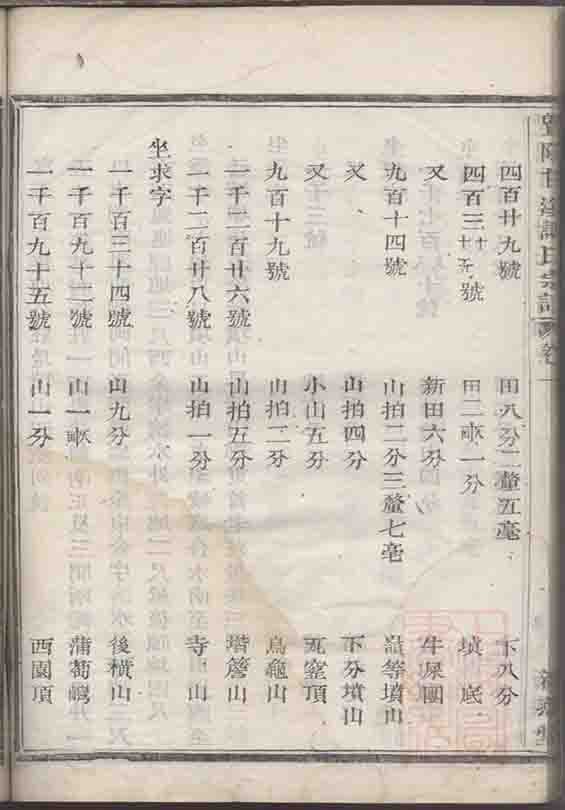 四百廿九號 田八分二釐五毫 下八分
四百三十十五號 田二畝一分 墳底
又 新田六分 牛屎團
九百十四號 山拍二分三釐七毫 等墳山
又 山拍四分 下分墳山
又 小山五分 瓦窰頂
九百十九號 山拍二分 烏龜山
一千二百廿六號 山拍五分 塔簷山
一千二百廿八號 山拍一分 寺山
坐求字
一千百三十四號 山九分 後橫山
一千百九十二號 山一畝 蒲萄
一千百九十五號 山一分 西園頂